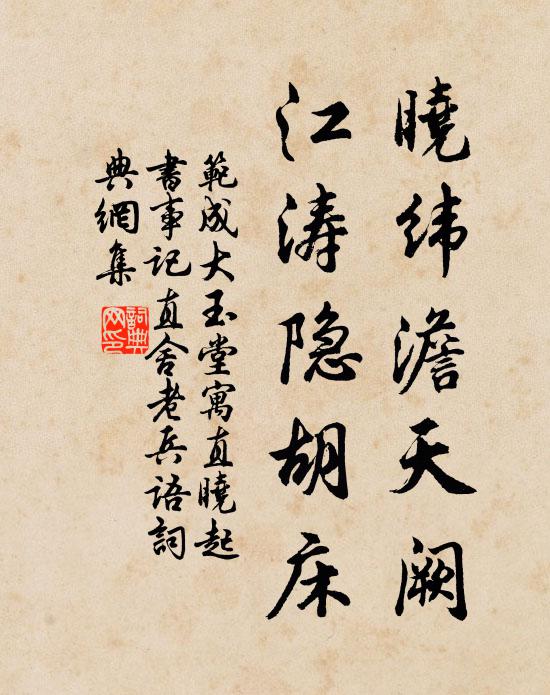 曉纬澹天阙
江涛隐胡床
範成大玉堂寓直曉起
書事記直舍老兵語詞
典網集
詞典网印